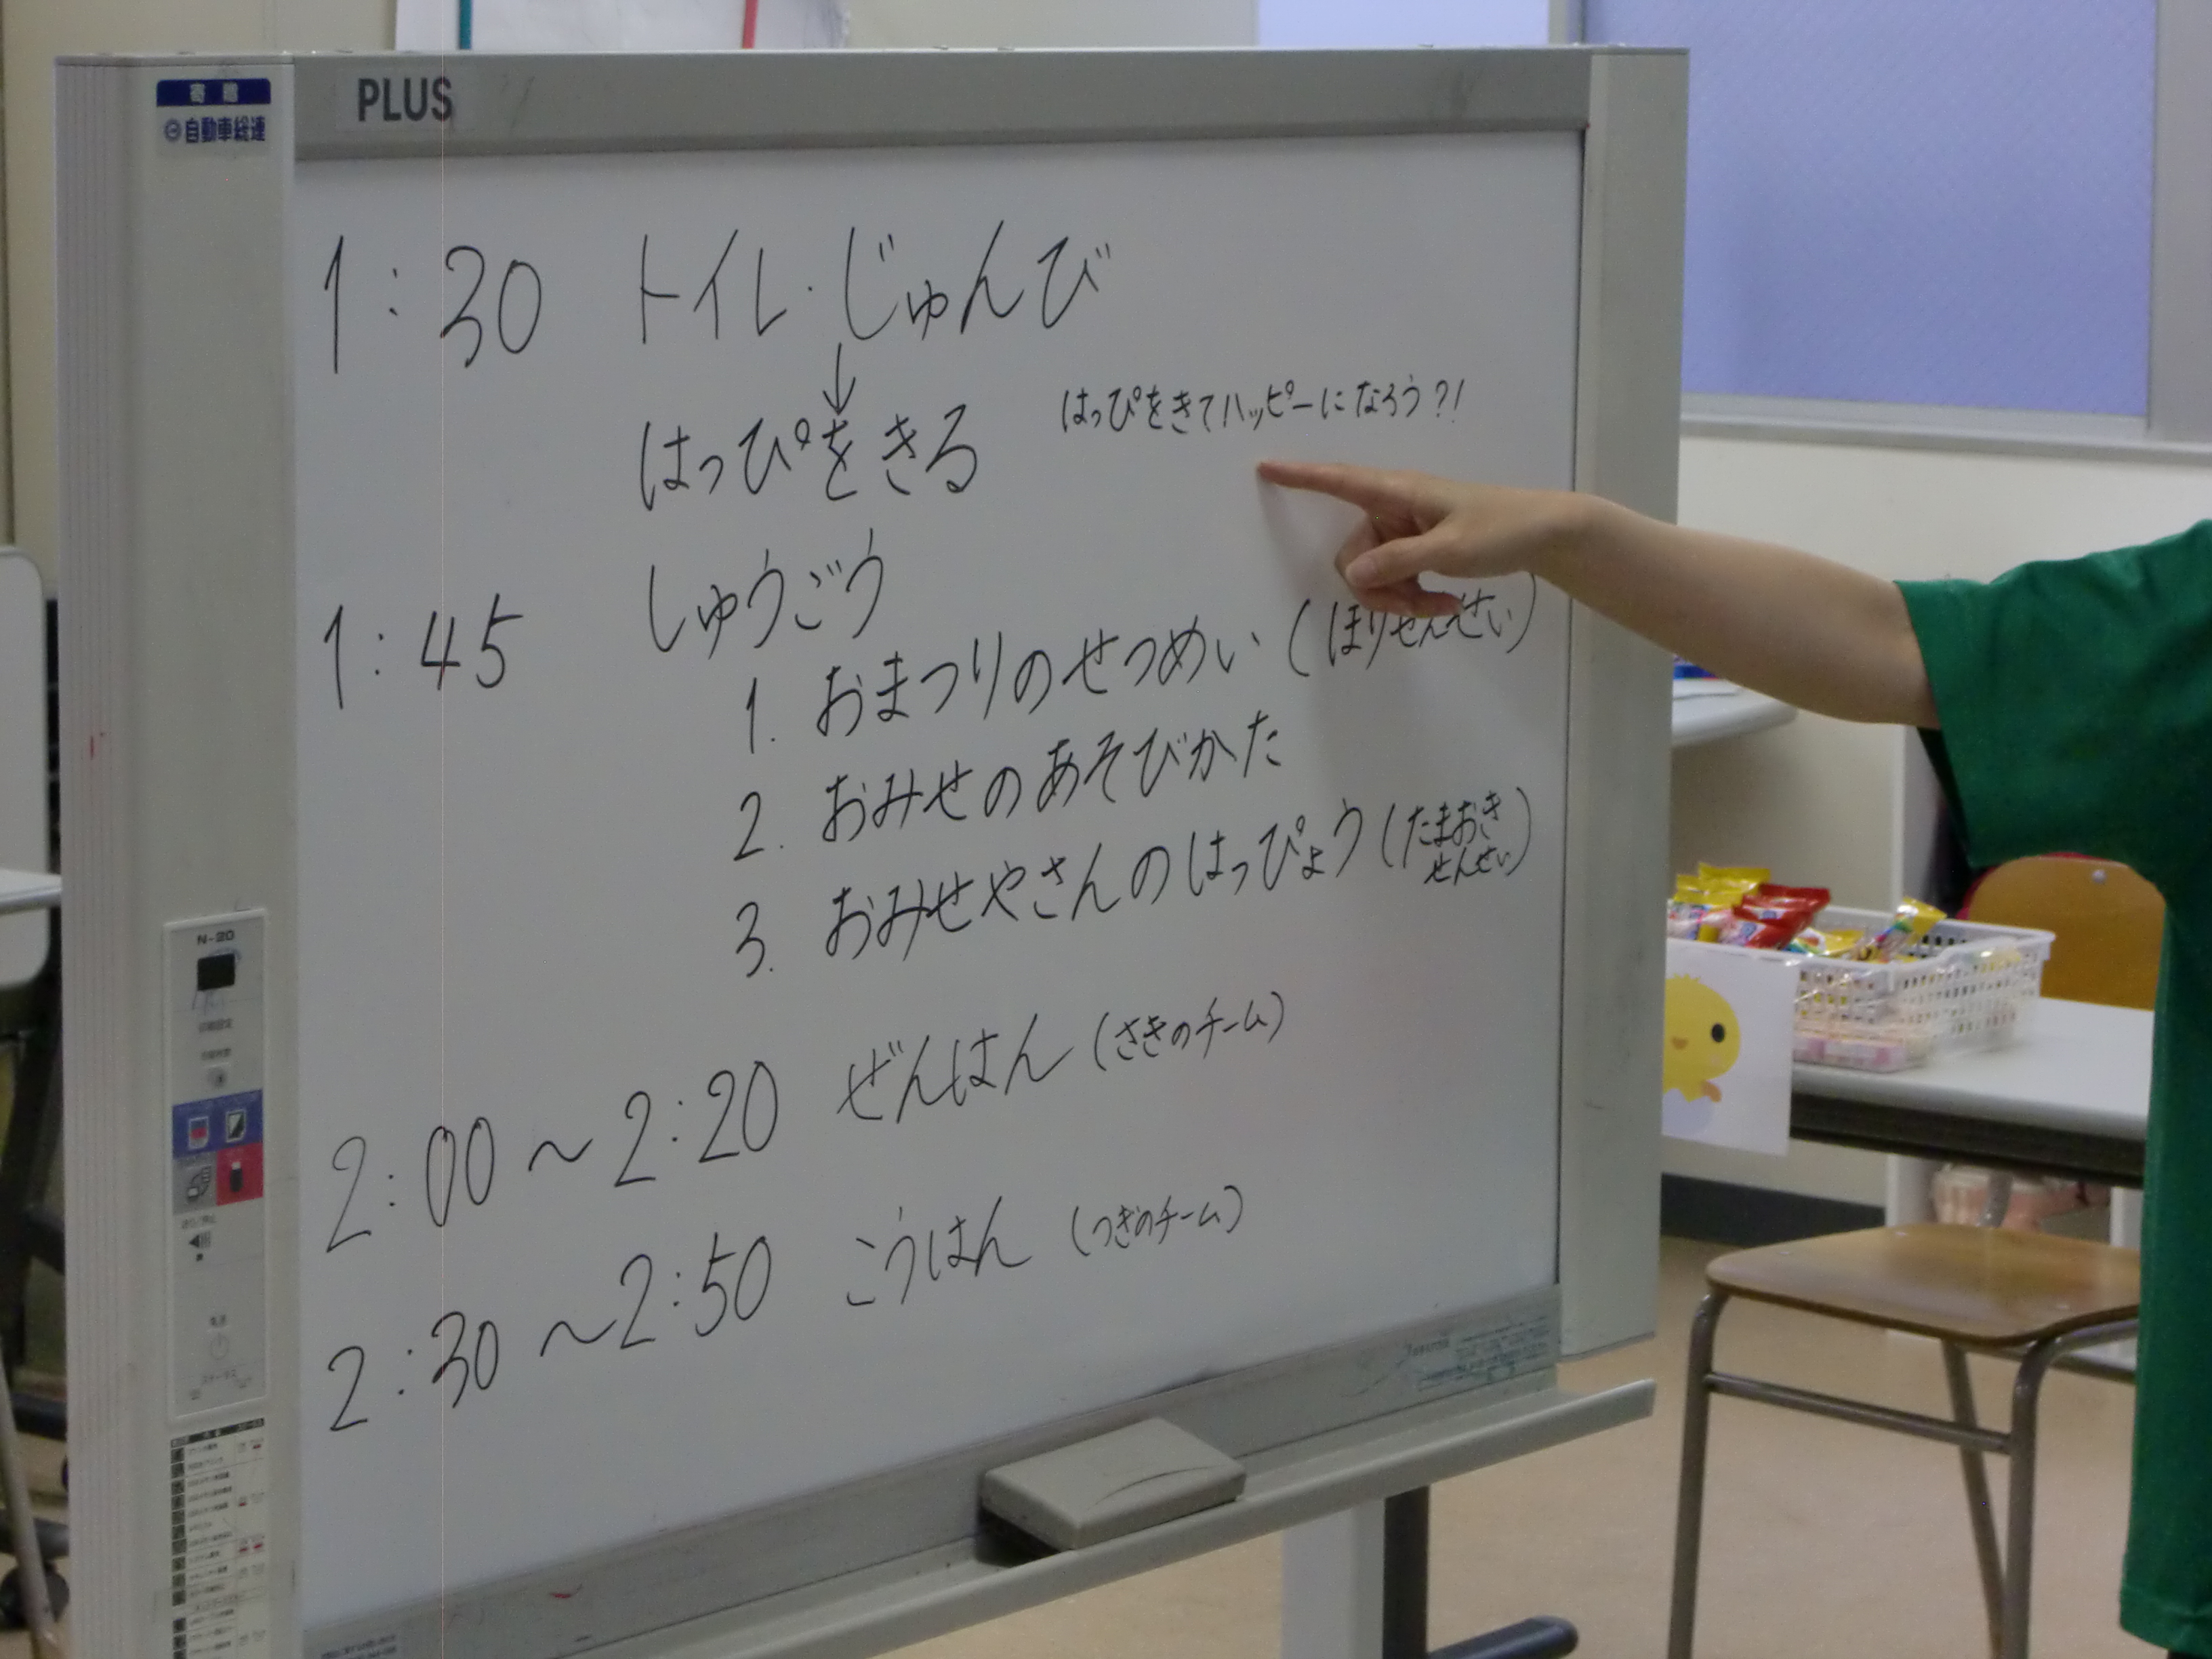 寄贈
自動車総連
PLUS
1:30 トイレ・じゅんび
↓
はっぴをきる はっぴをきてハッピーになろう?!
1:45 しゅうごう
1. おまつりのせつめい(ほりせんせい)
2. おみせのあそびかた
3. おみせやさんのはっぴょう(たまおき
せんせい)
2:00~2:20 ぜんはん(さきのチーム)
2:30~2:50 こうはん(つぎのチーム)
N-20